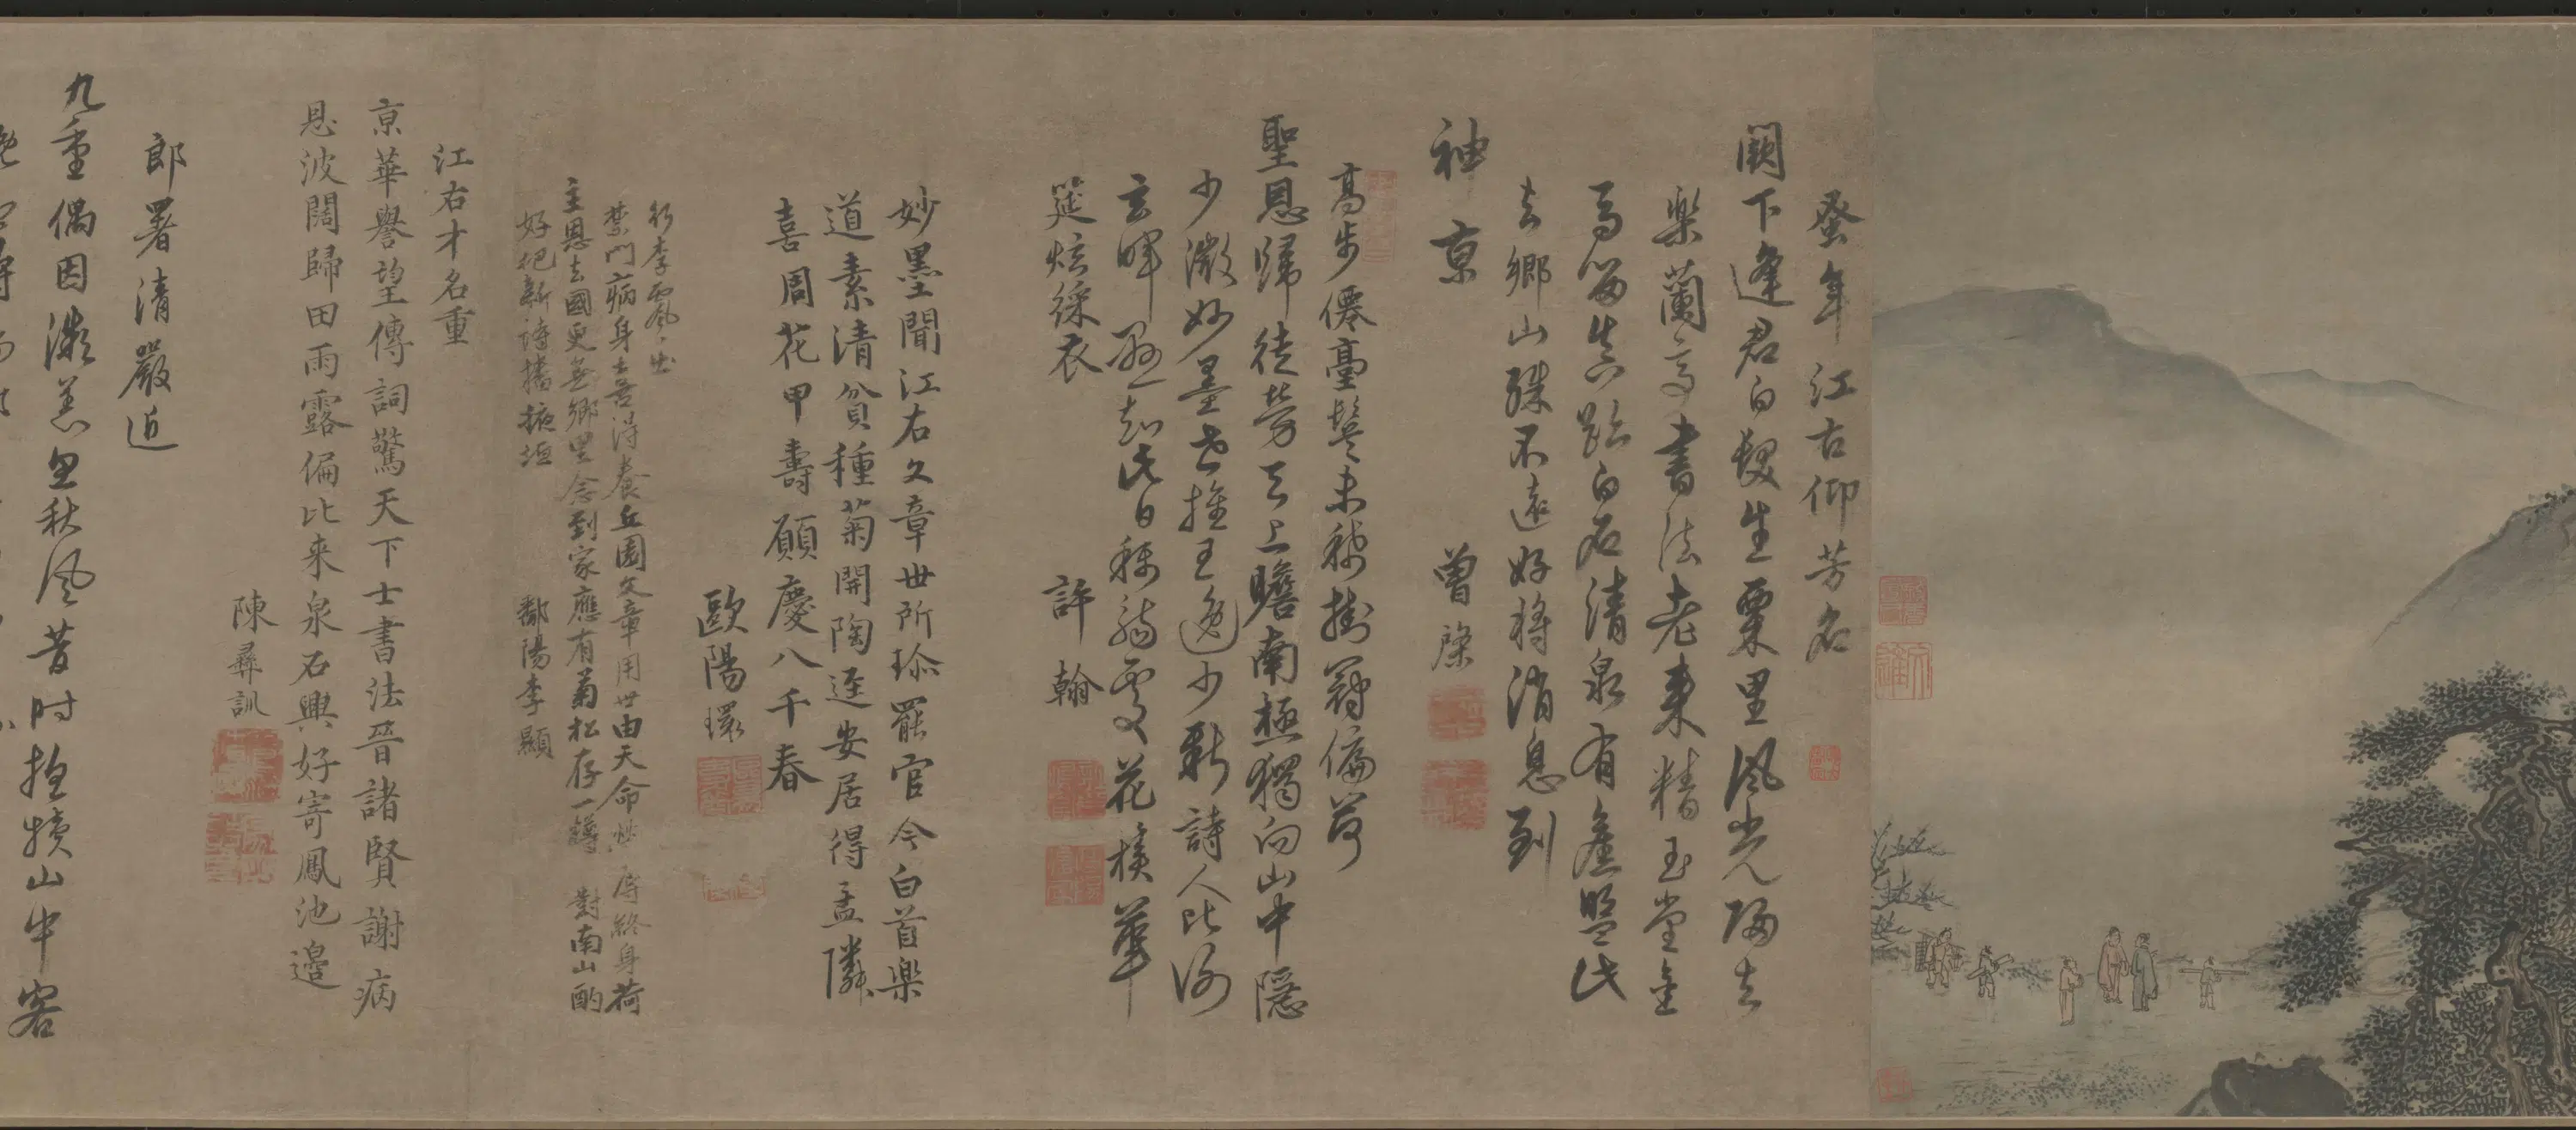 發年江右仰芳名
闕下逢君白髮生粟里風光歸去
樂蘭亭書法老來精玉堂金
馬留真跡白石清泉有舊盟此
去鄉山殊不遠好將消息到
神京 曾棨
高步僊臺鬢未秋掛冠偏荷
聖恩歸徒勞天上瞻南極獨向山中隱
少微妙墨世推王逸少新詩人比謝
玄暉到知此日稱觴處花樸華
筵炫綵衣 許翰
妙墨聞江右文章世所珍罷官今白首樂
道素清貧種菊開陶逕安居得孟隣
喜周花甲壽願慶八千春
歐陽璟
行李飄飄出
禁門病身喜得養丘園文章用世由天命 終身荷
主恩去國更無鄉里念到家應有菊松存一罇 對南山酌
好把新詩播掖垣 鄱陽李顯
江右才名重
京華譽望傳詞驚天下士書法晉諸賢謝病
恩波闊歸田雨露偏比來泉石興好寄鳳池邊
陳彞訓
郎署清嚴近
九重偶因瀕恙忽秋風昔時抱犢山中客